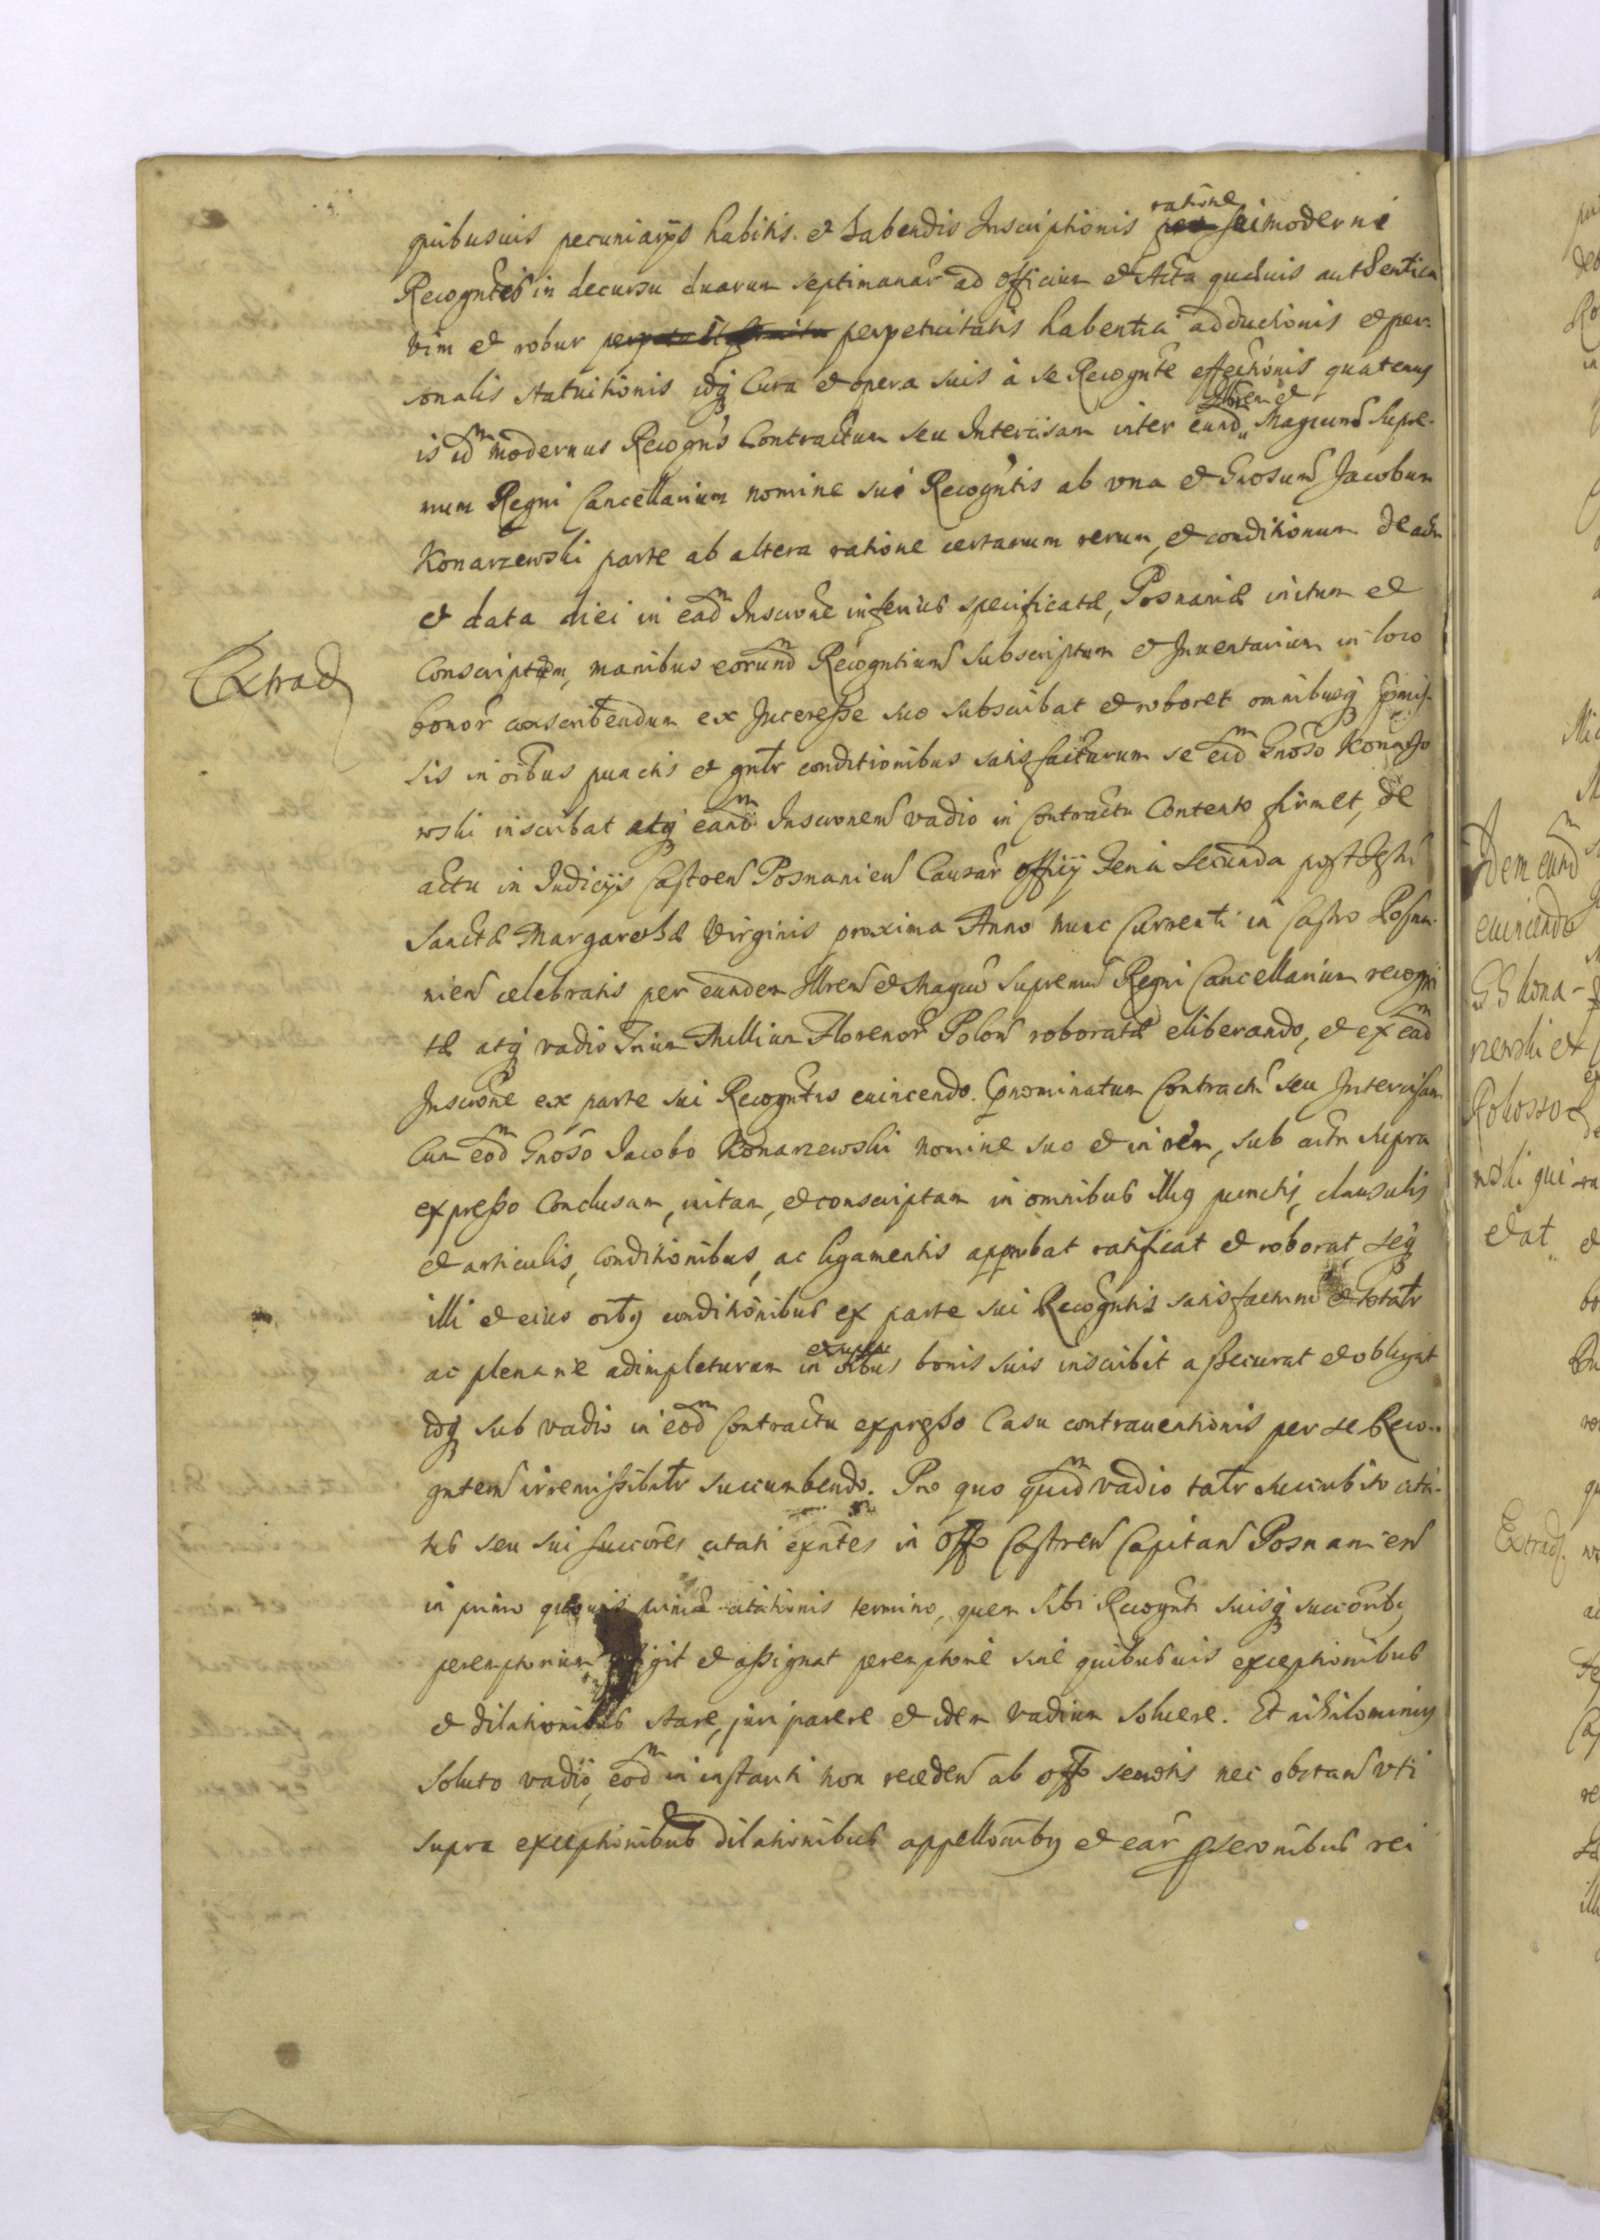 quibusuis pecuniarys habitis et habendis Inscriptionis ratione sui moderni
Recogntis in decursu duarum septimanar ad officium et Acta quaeuis authentica
vim et robur perpetuitatis habentia adductionis et per-
sonalis statuitionis idq cura et opera suis à se Recognte effectionis quatenus
is idm modernus Recogns Contractum seu Intercisam inter eund Illrem et Magcum Supre-
mum Regni Cancellarium nomine sui Recogntis ab vna et Gnosum Jacobum
Konarzewski parte ab altera ratione certarum rerum, et conditionum de actu
et data diei in eadm Inscrone inferius specificatae, Posnaniae initum et
Conscriptam, manibus eorundm Recogntium Subscriptum et Inuentarium in loco
bonor conscribendum ex Interesse suo subscribat et roboret omnibusq pmis-
sis in oibus punctis et gntr conditionibus satisfacturum se eidm Gnoso Konarze
wski inscribat atq eandm Inscronem vadio in Contractu Contento firmet, de
actu in Judicijs Castren Posnanien Causar officij Feria Secunda post festum
Sanctae Margarethae Virginis proxima Anno nunc Currenti in Castro Posna-
nien celebratis per eundem Illrem et Magcum Supremum Regni Cancellarium recogni
tae atq vadio Trium Millium Florenor Polon roboratae eliberando, et ex eadm
Inscrone ex parte sui Recogntis euincendo. Pnominatum Contractum seu Intercisam
Cum eodm Gnoso Jacobo Konarzewski nomine suo et in rem, sub actu supra
expresso Conclusam, initam, et conscriptam in omnibus illius punctis, clausulis
et articulis, conditionibus, ac ligamentis approbat ratificat et roborat, seq
illi et eius oibq conditionibus ex parte sui Recogntis satisfacturum et totalr
ac plenarie adimpleturum in et super oibus bonis suis inscribit assecurat et obligat
idq sub vadio in eodm Contractu expresso Casu contrauentionis per se Reco-
gntem irremissibilr succumbendo. Pro quo quidm vadio talr succubito cita-
tus seu sui succores citati exntes in Offo Castren Capitan Posnanien
in primo quouis citationis termino, quem sibi Recognti suisq succoribq
peremptorium et assignat peremptorie sine quibusuis exceptionibus
et dilationibus stare, juri parere et idem vadium soluere. Et nihilominus
Soluto vadio, eodm in instanti non recedens ab offo nec obstan vti
supra exceptionibus dilationibus appellonibq et ear psecronibus rei
Extrad